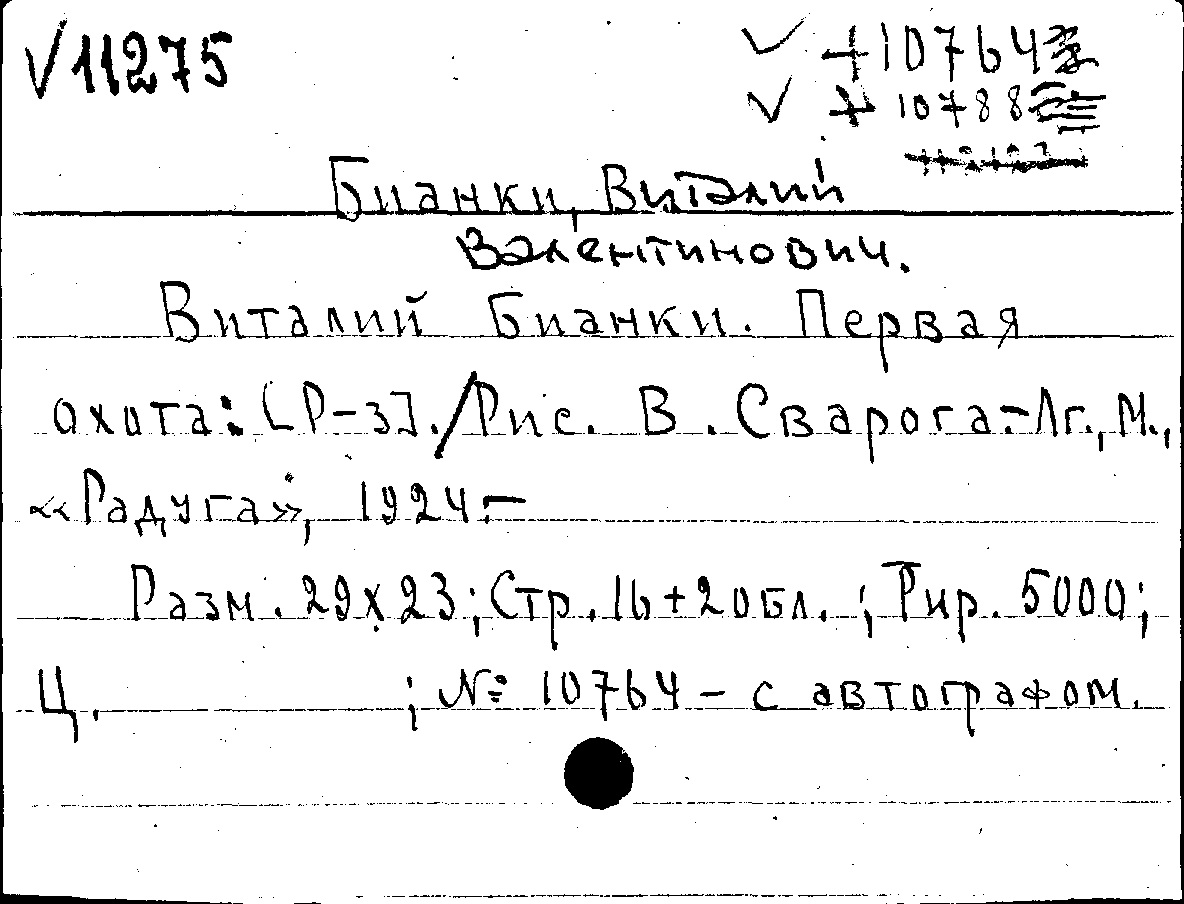 √11275
✓ +10764
✓ + 10788
Бианки, Виталий
Валентинович.
Виталий Бианки. Первая
охота: [Р-з]./Рис. В. Сварога.-Лг., М.,
«Радуга», 1924.-
Разм. 29х23; Стр. 16+2обл.; Тир. 5000;
Ц. ; №: 10764 - с автографом.